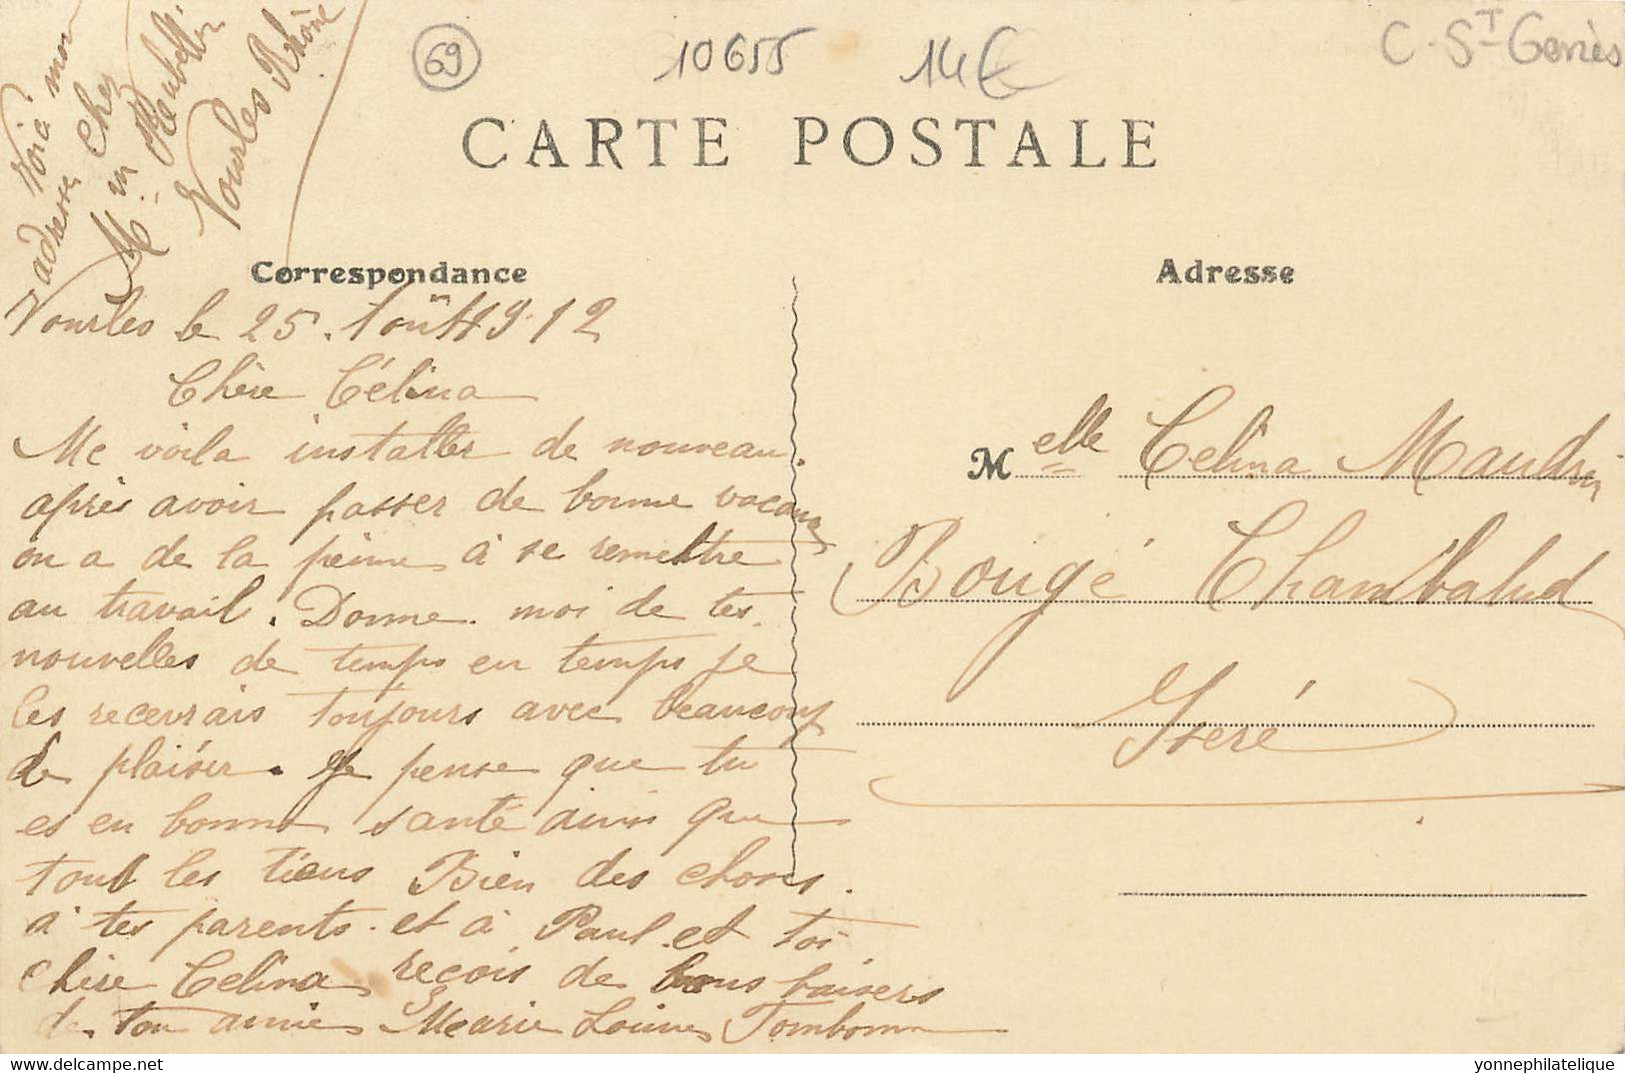 69
10655
14€
C. St Geniès
CARTE POSTALE
Voici mon
adresse chez
Mr
Vourles Rhône
Correspondance
Adresse
Vourles le 25. Août 1912
Chère Célina
Me voila installer de nouveau.
après avoir passer de bonne vacans
on a de la peine à se remettre
au travail. Donne. moi de tes.
nouvelles de temps en temps je
les recevrais toujours avec beaucoup
de plaisir. Je pense que tu
es en bonne santé ainsi que
tout les tiens Bien des choses.
à tes parents. et à Paul et toi
chère Celina reçois de bons baisers
de ton amie Marie Louise
Melle Celina Maudrin
Bougé Chambalud
Iseré
delcampe.net
yonnephilatelique